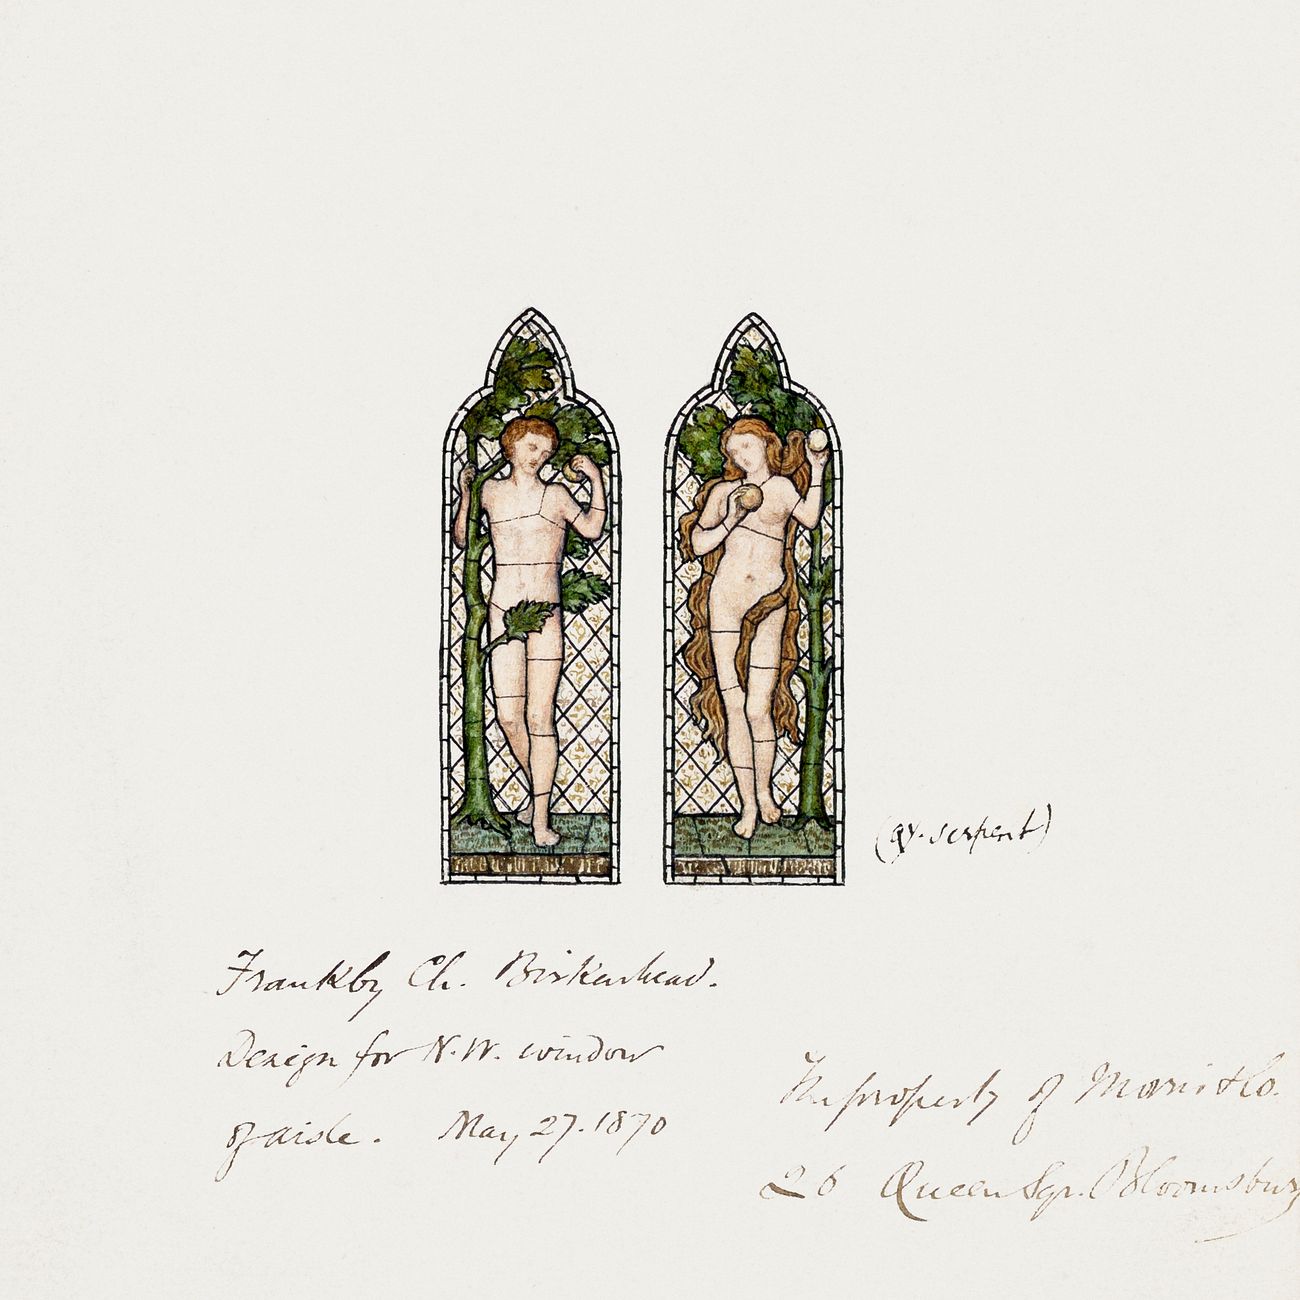 (qy. serpent)
Frankby Ch. Birkenhead.
Design for N.W. window
of aisle. May 27. 1870
The property of Morris & Co.
26 Queen Sqr. Bloomsbury